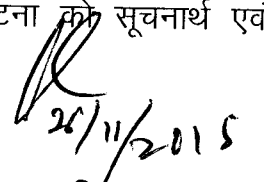 टना को सूचनार्थ एवं
26/11/2015